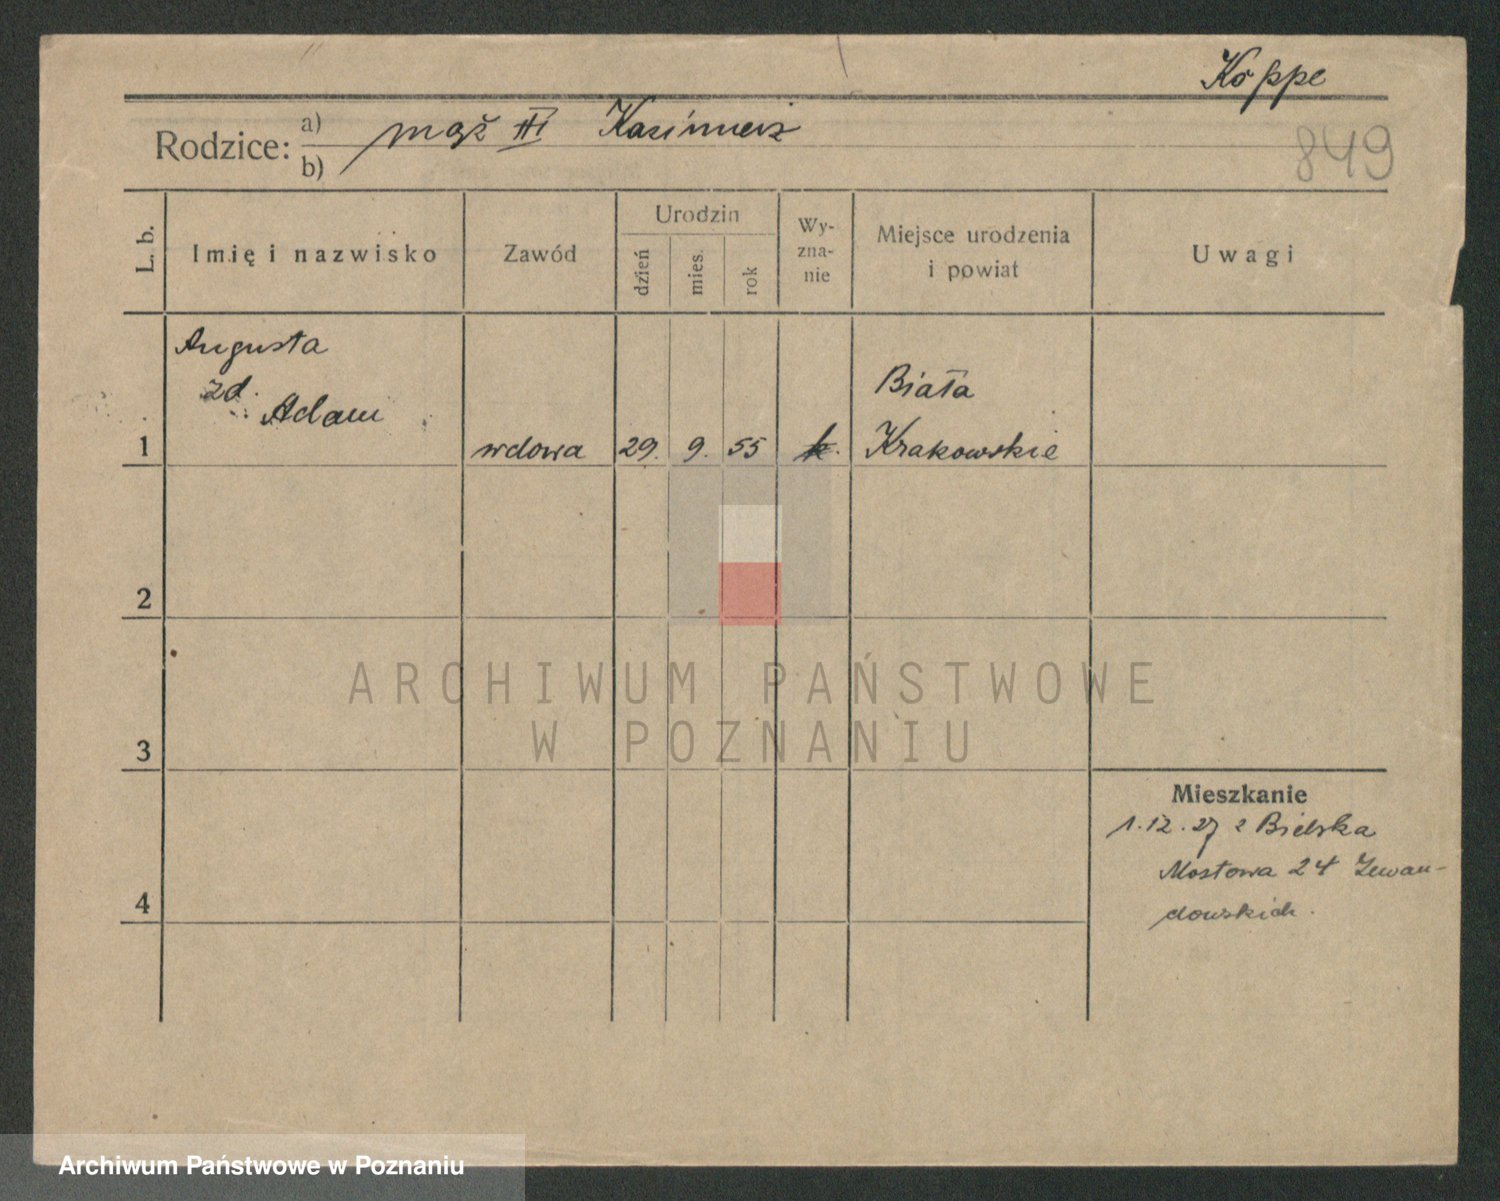 Koppe
Rodzice: a) b) mąż III Kazimierz
849
L. b. Imię i nazwisko Zawód Urodzin dzień mies. rok Wy-zna-nie Miejsce urodzenia i powiat Uwagi
Augusta
zd. Adam
1 wdowa 29. 9. 55 k. Biała Krakowskie
2
3
4
Mieszkanie
1.12.27 z Bielska
Mostowa 24 Lewan-
dowskich.
ARCHIWUM PAŃSTWOWE
W POZNANIU
Archiwum Państwowe w Poznaniu